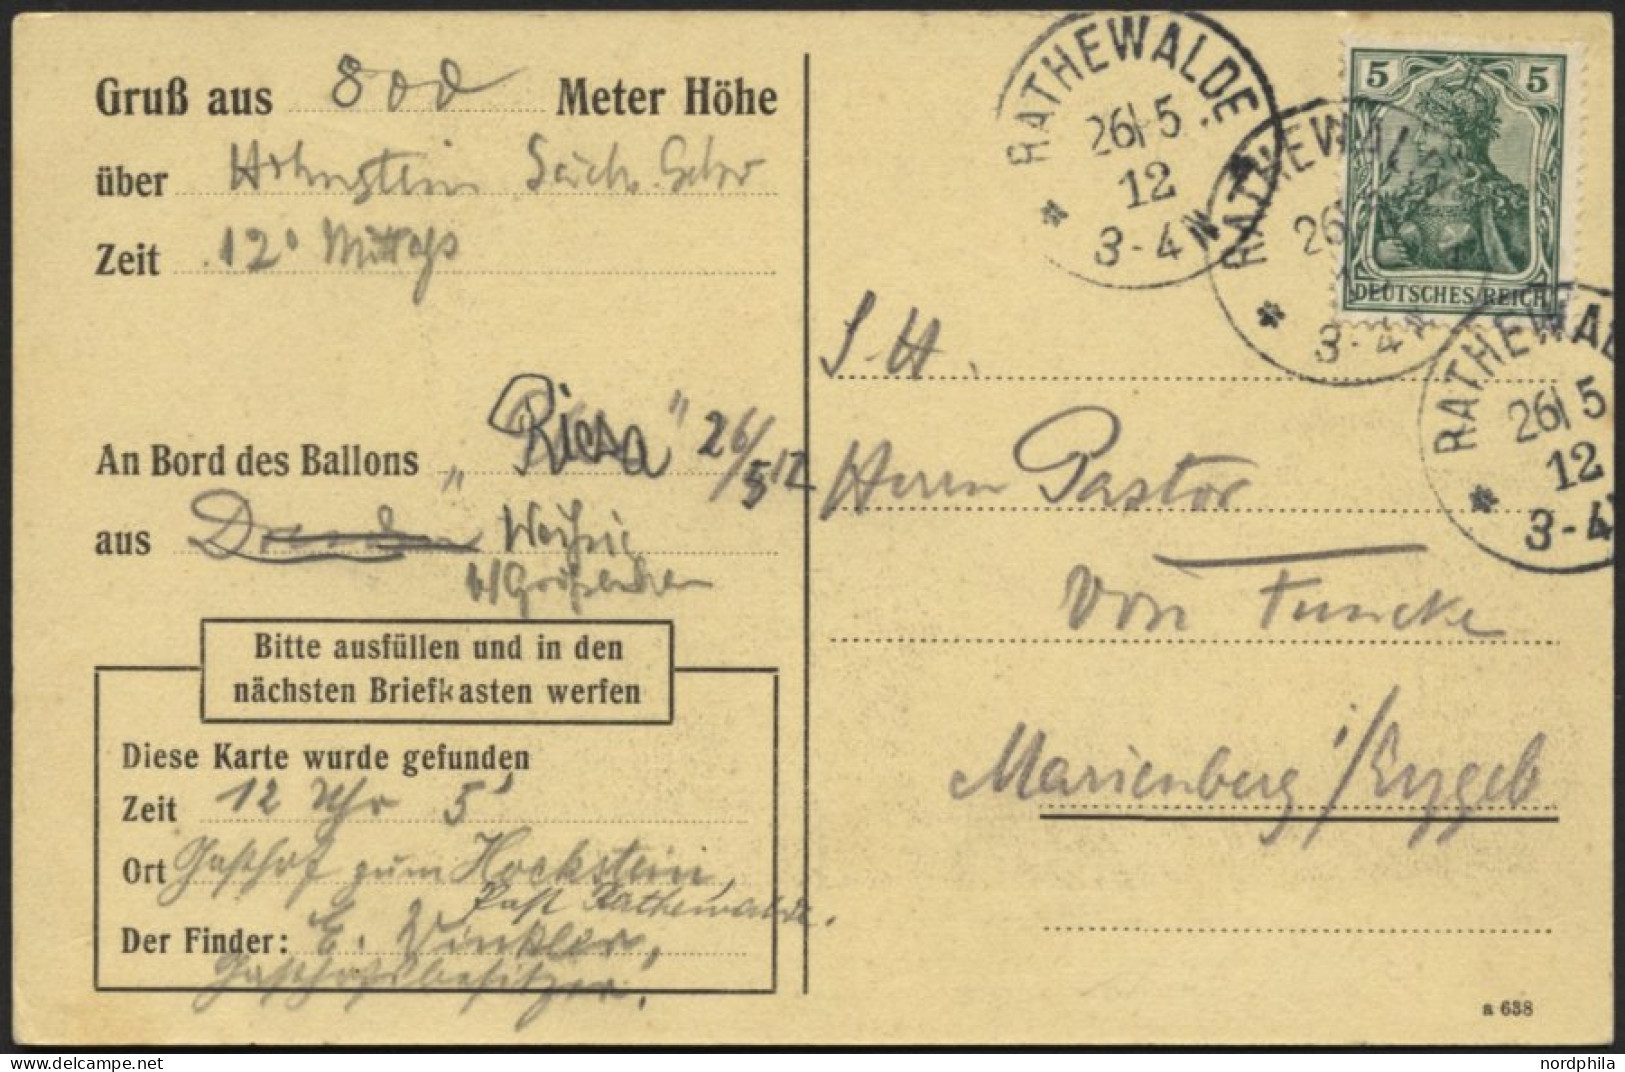 Gruß aus 800 Meter Höhe
über Hohnstein Sächs. Schw
Zeit 12° Mittags
An Bord des Ballons „Riesa" 26/5 12
aus Dresden Weißig
b/Großenhain
Bitte ausfüllen und in den
nächsten Briefkasten werfen
Diese Karte wurde gefunden
Zeit 12 Uhr 5'
Ort Gasthof zum Hockstein,
Post Rathewalde.
Der Finder: E. Winkler,
Gasthofsbesitzer.
RATHEWALDE
26 5
12
3-4 N
RATHEWALDE
26
3-4 N
RATHEWAL
26 5
12
3-4
5 5
DEUTSCHES REICH
S. H.
Herrn Pastor
von Funcke
Marienberg i/Erzgeb
a 638
delcampe.net
nordphila